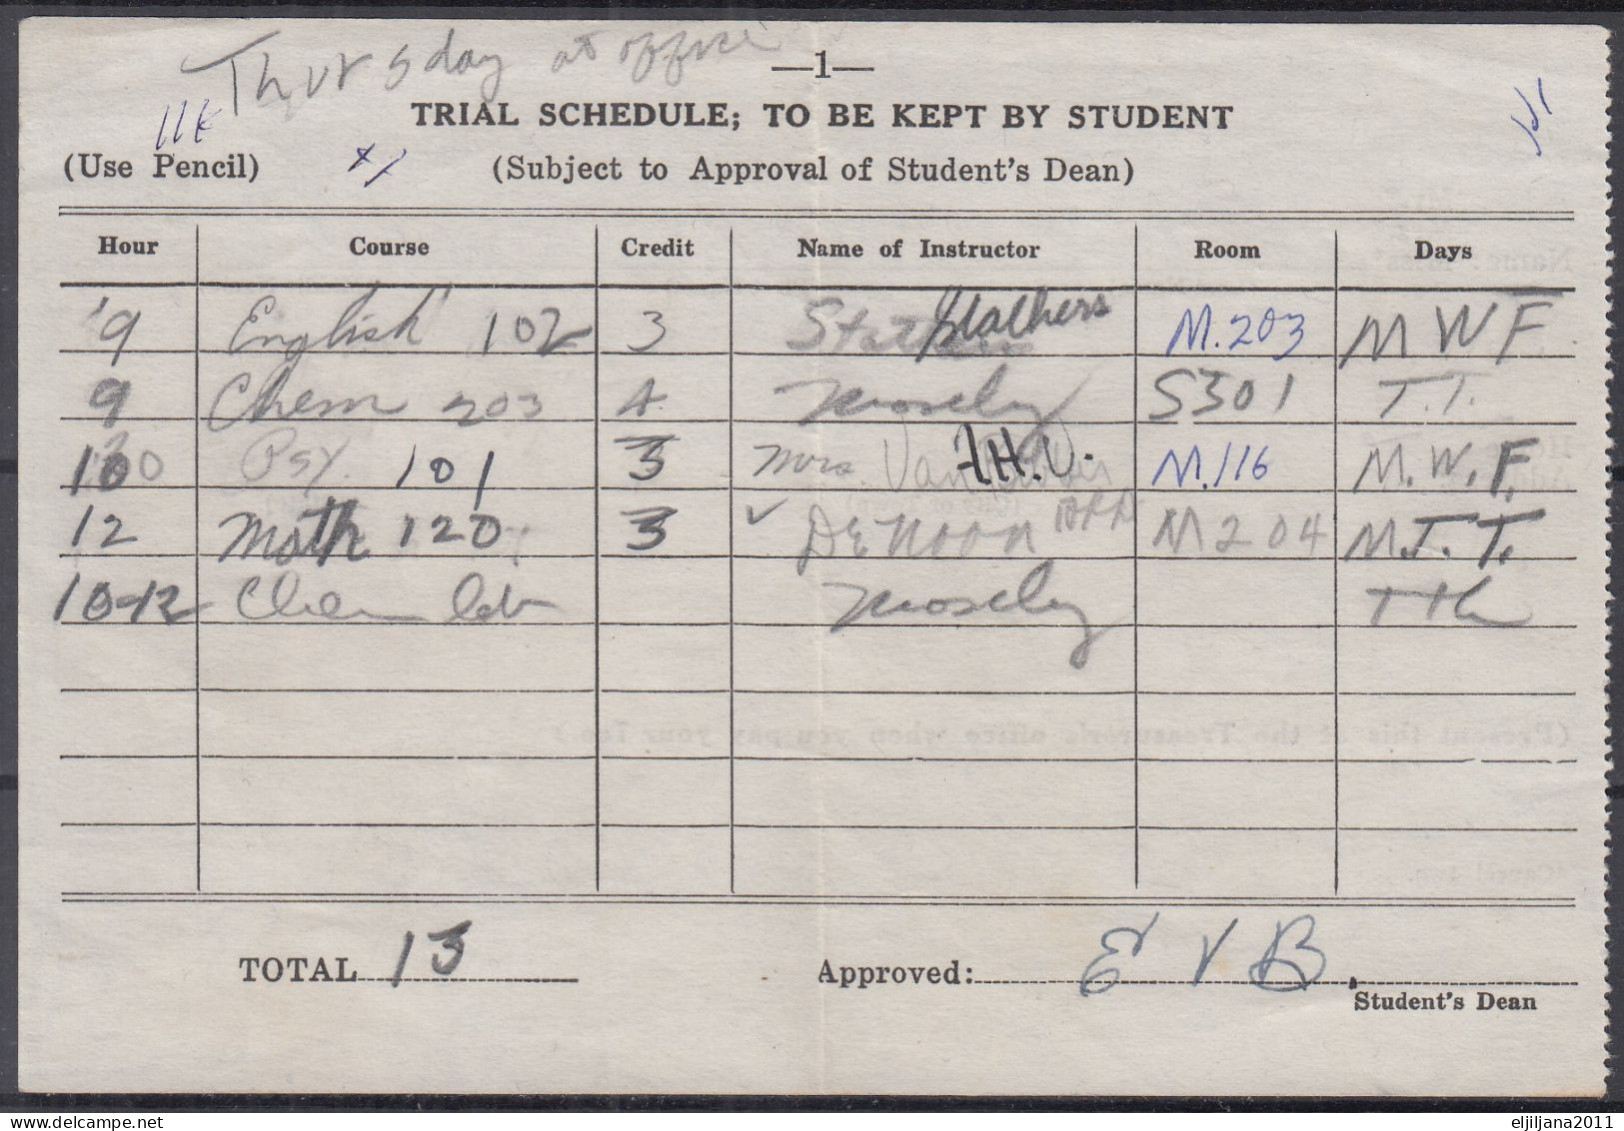 Thursday at office
—1—
TRIAL SCHEDULE; TO BE KEPT BY STUDENT
(Use Pencil) (Subject to Approval of Student's Dean)
Hour Course Credit Name of Instructor Room Days
9 English 102 3 Stathers M.203 M W F
9 Chem 203 4 Moseley S301 T.T.
10 Psy. 101 3 Mrs. Van J.H.V. M.116 M.W.F.
12 Math 120 3 DeNoon M204 M.T.T.
10-12 Chem Lab Moseley T Th
TOTAL 13 Approved: E V B.
Student's Dean
eljiljana2011